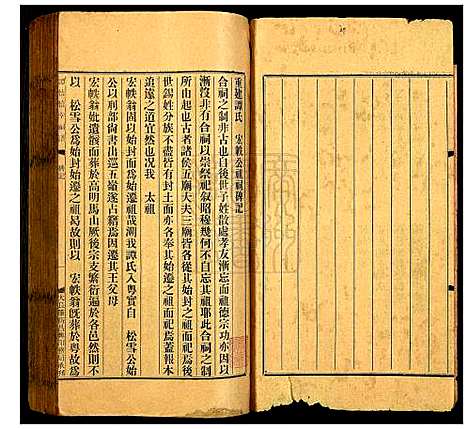 重建譚氏 宏帙公祖祠碑記
合祠之制非古也自後世子姓散處孝友漸忘而祖德宗功亦因以
漸沒非有合祠以崇祭祀叙昭穆幾何不自忘其祖耶此合祠之制
所由起也古者諸侯五廟大夫三廟皆有始封之祖而祀焉後
世錫姓分族不盡皆有封土而亦各奉其始遷之祖而祀焉蓋報本
追遠之道宜然也况我 太祖
公以刑部尙書出巡五嶺遂占籍焉因遷其王父母
宏帙翁妣遺骸而葬於高明馬山厥後宗支繁衍遍於各邑然則不
以 松雪公爲始封始遷之祖曷故而以 宏帙翁旣葬於粤故爲
始封而爲始遷祖哉溯我譚氏入粤實自 松雪公始